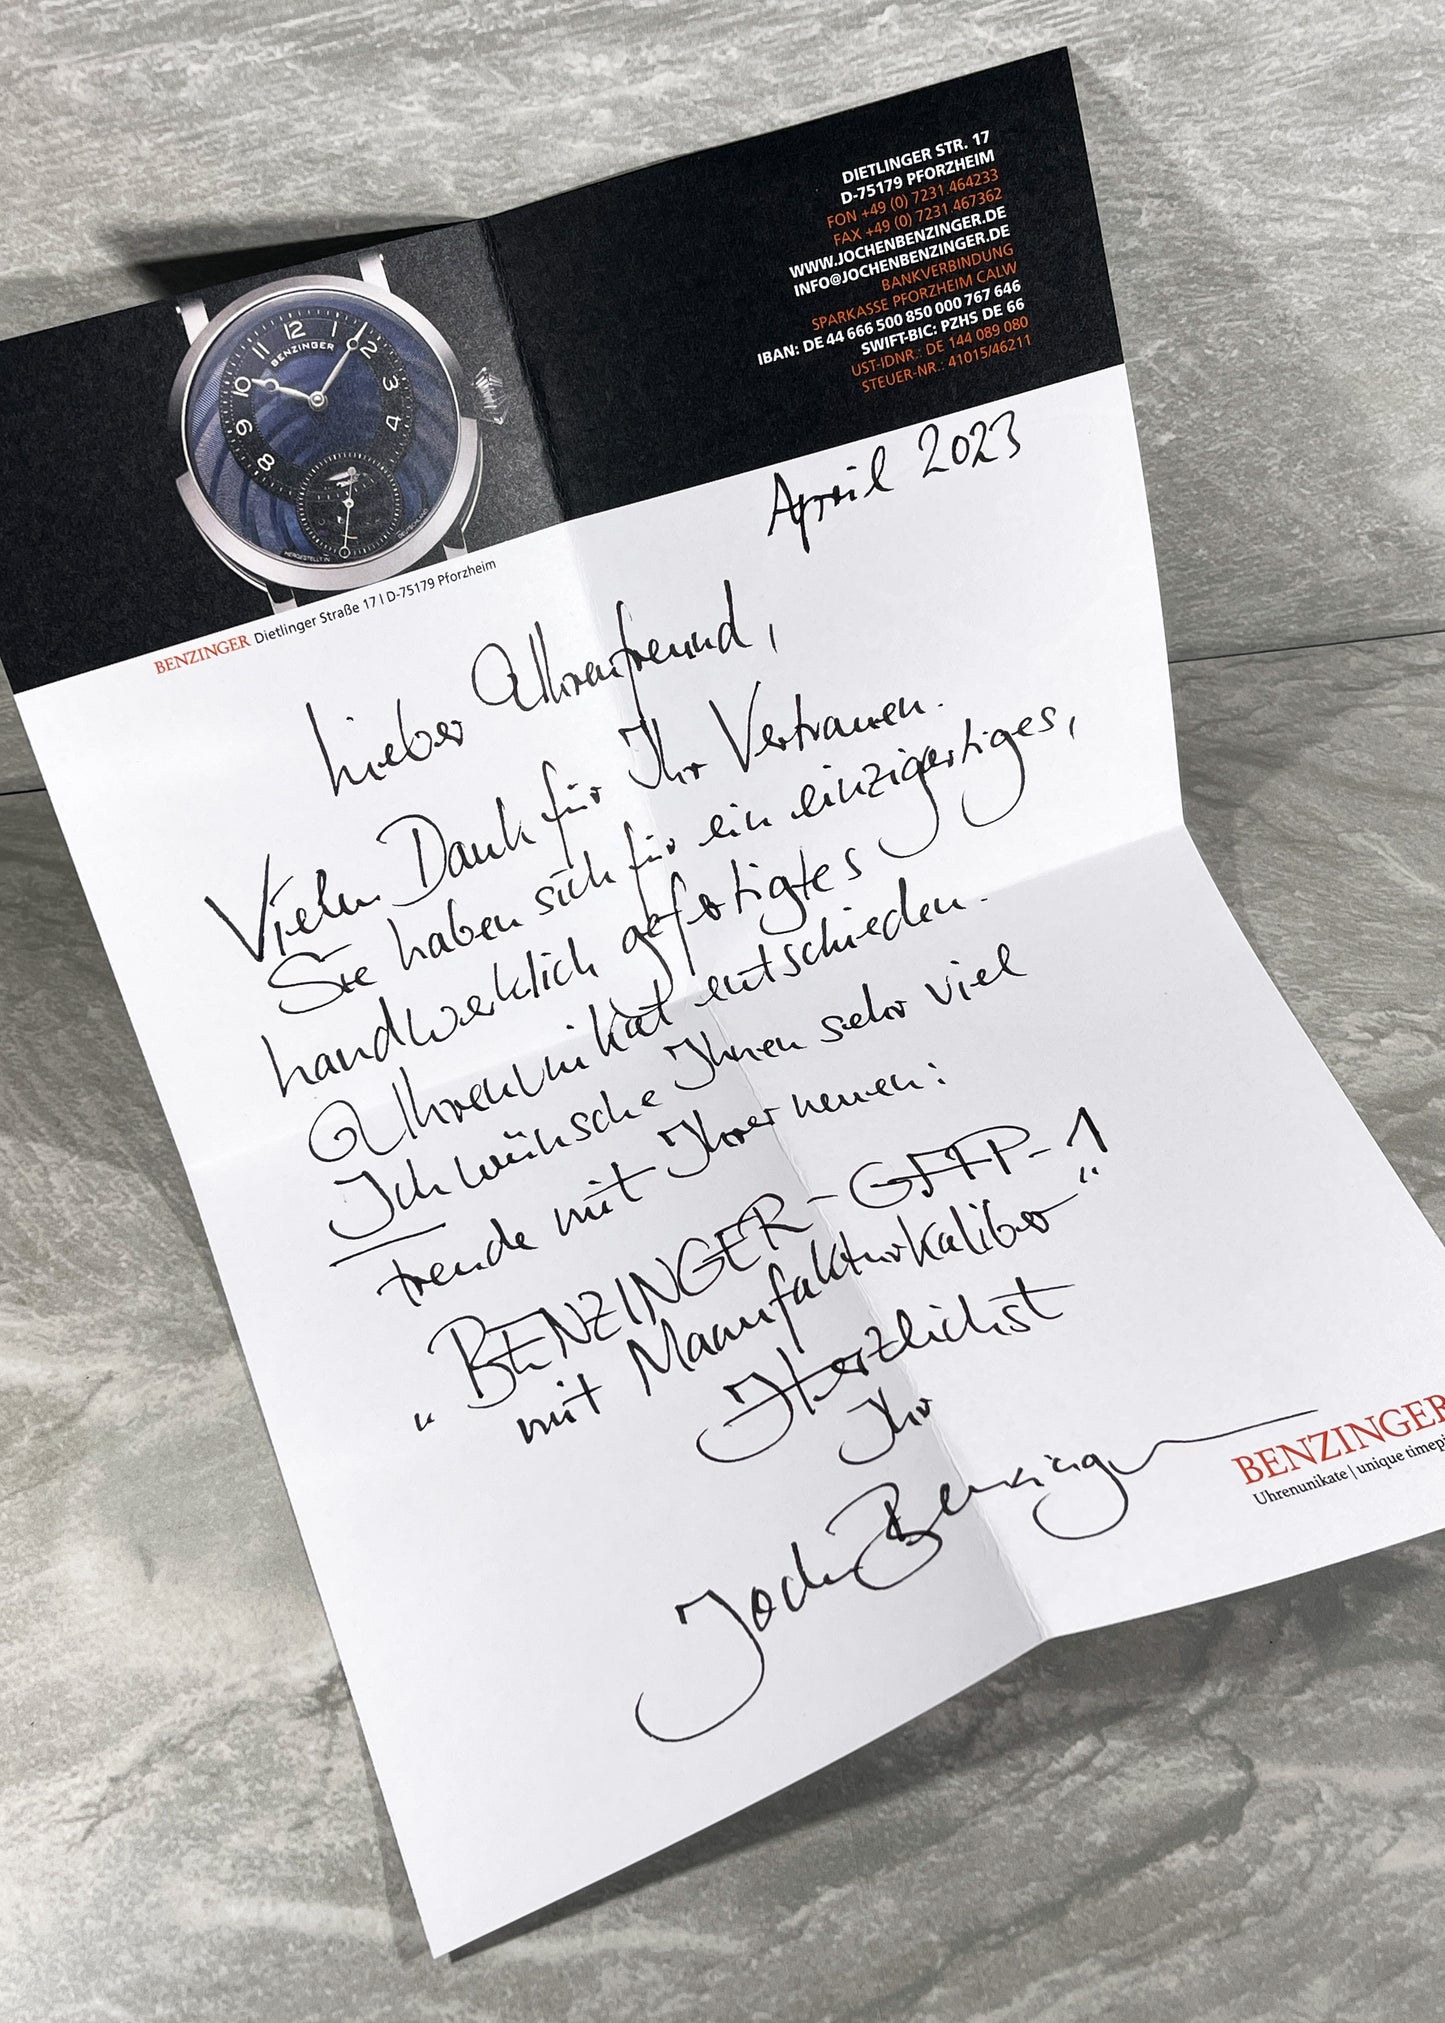 DIETLINGER STR. 17
D-75179 PFORZHEIM
FON +49 (0) 7231.464233
FAX +49 (0) 7231.467362
WWW.JOCHENBENZINGER.DE
INFO@JOCHENBENZINGER.DE
BANKVERBINDUNG
SPARKASSE PFORZHEIM CALW
IBAN: DE 44 666 500 850 000 767 646
SWIFT-BIC: PZHS DE 66
UST-IDNR.: DE 144 089 080
STEUER-NR.: 41015/46211
12 1 2 3 4 8 9 10 11
BENZINGER
HERGESTELLT IN DEUTSCHLAND
BENZINGER Dietlinger Straße 17 I D-75179 Pforzheim
April 2023
Lieber Uhrenfreund,
Vielen Dank für Ihr Vertrauen.
Sie haben sich für ein einzigartiges,
handwerklich gefertigtes
Uhrenunikat entschieden.
Ich wünsche Ihnen sehr viel
Freude mit Ihrer neuen:
„BENZINGER-GFFP-1
mit Manufakturkaliber“
Herzlichst
Ihr
Jochen Benzinger
BENZINGER
Uhrenunikate | unique timepi